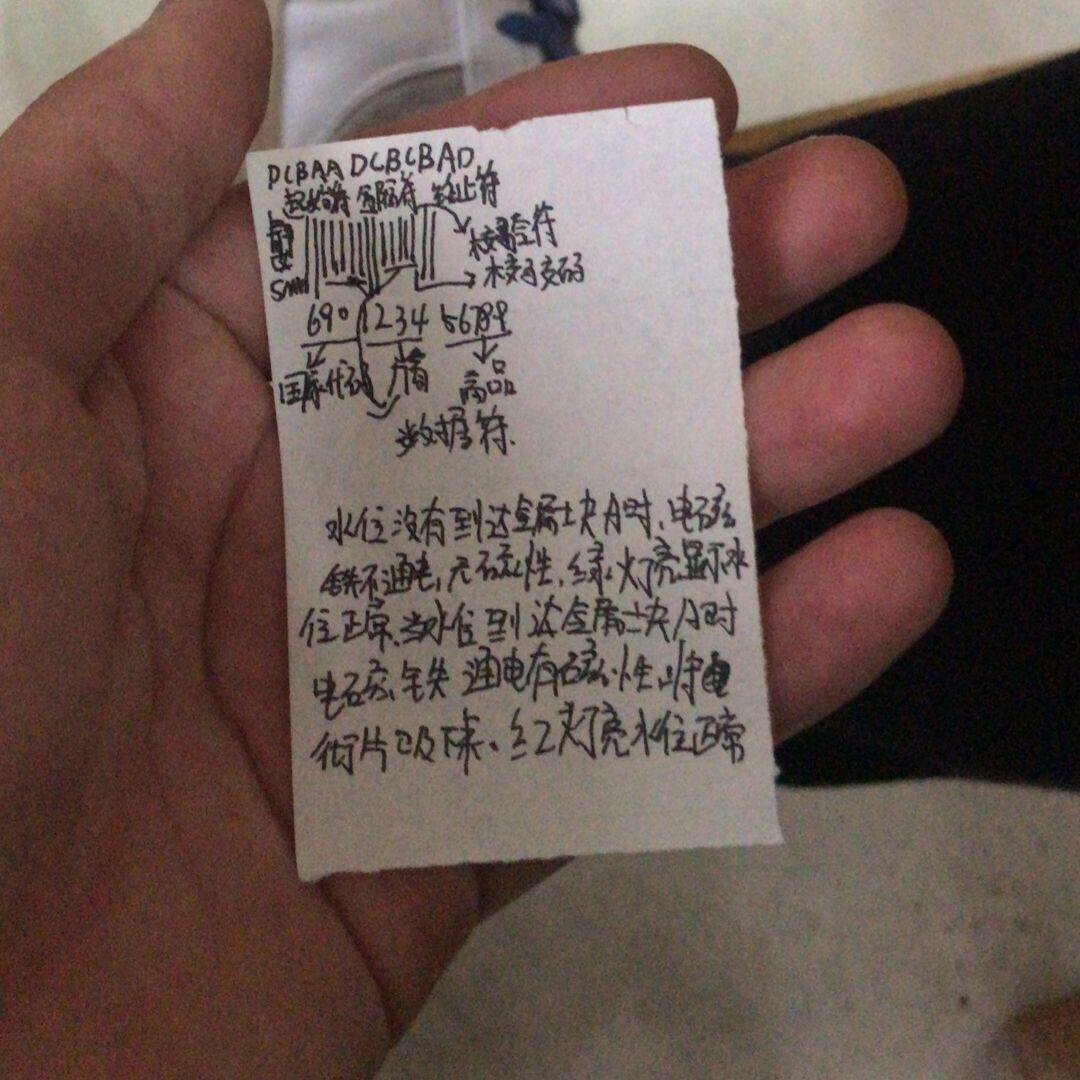 DCBAA DCBCBAD
起始符 分隔符 终止符
校验符
校验码
5mm
690 1234 56789
国家代码 厂商 商品
数据符.
水位没有到达金属块A时、电磁
铁不通电,无磁性,绿灯亮显示水
位正常、当水位到达金属块A时
电磁铁通电有磁性,将电
衔片吸下来、红灯亮水位正常